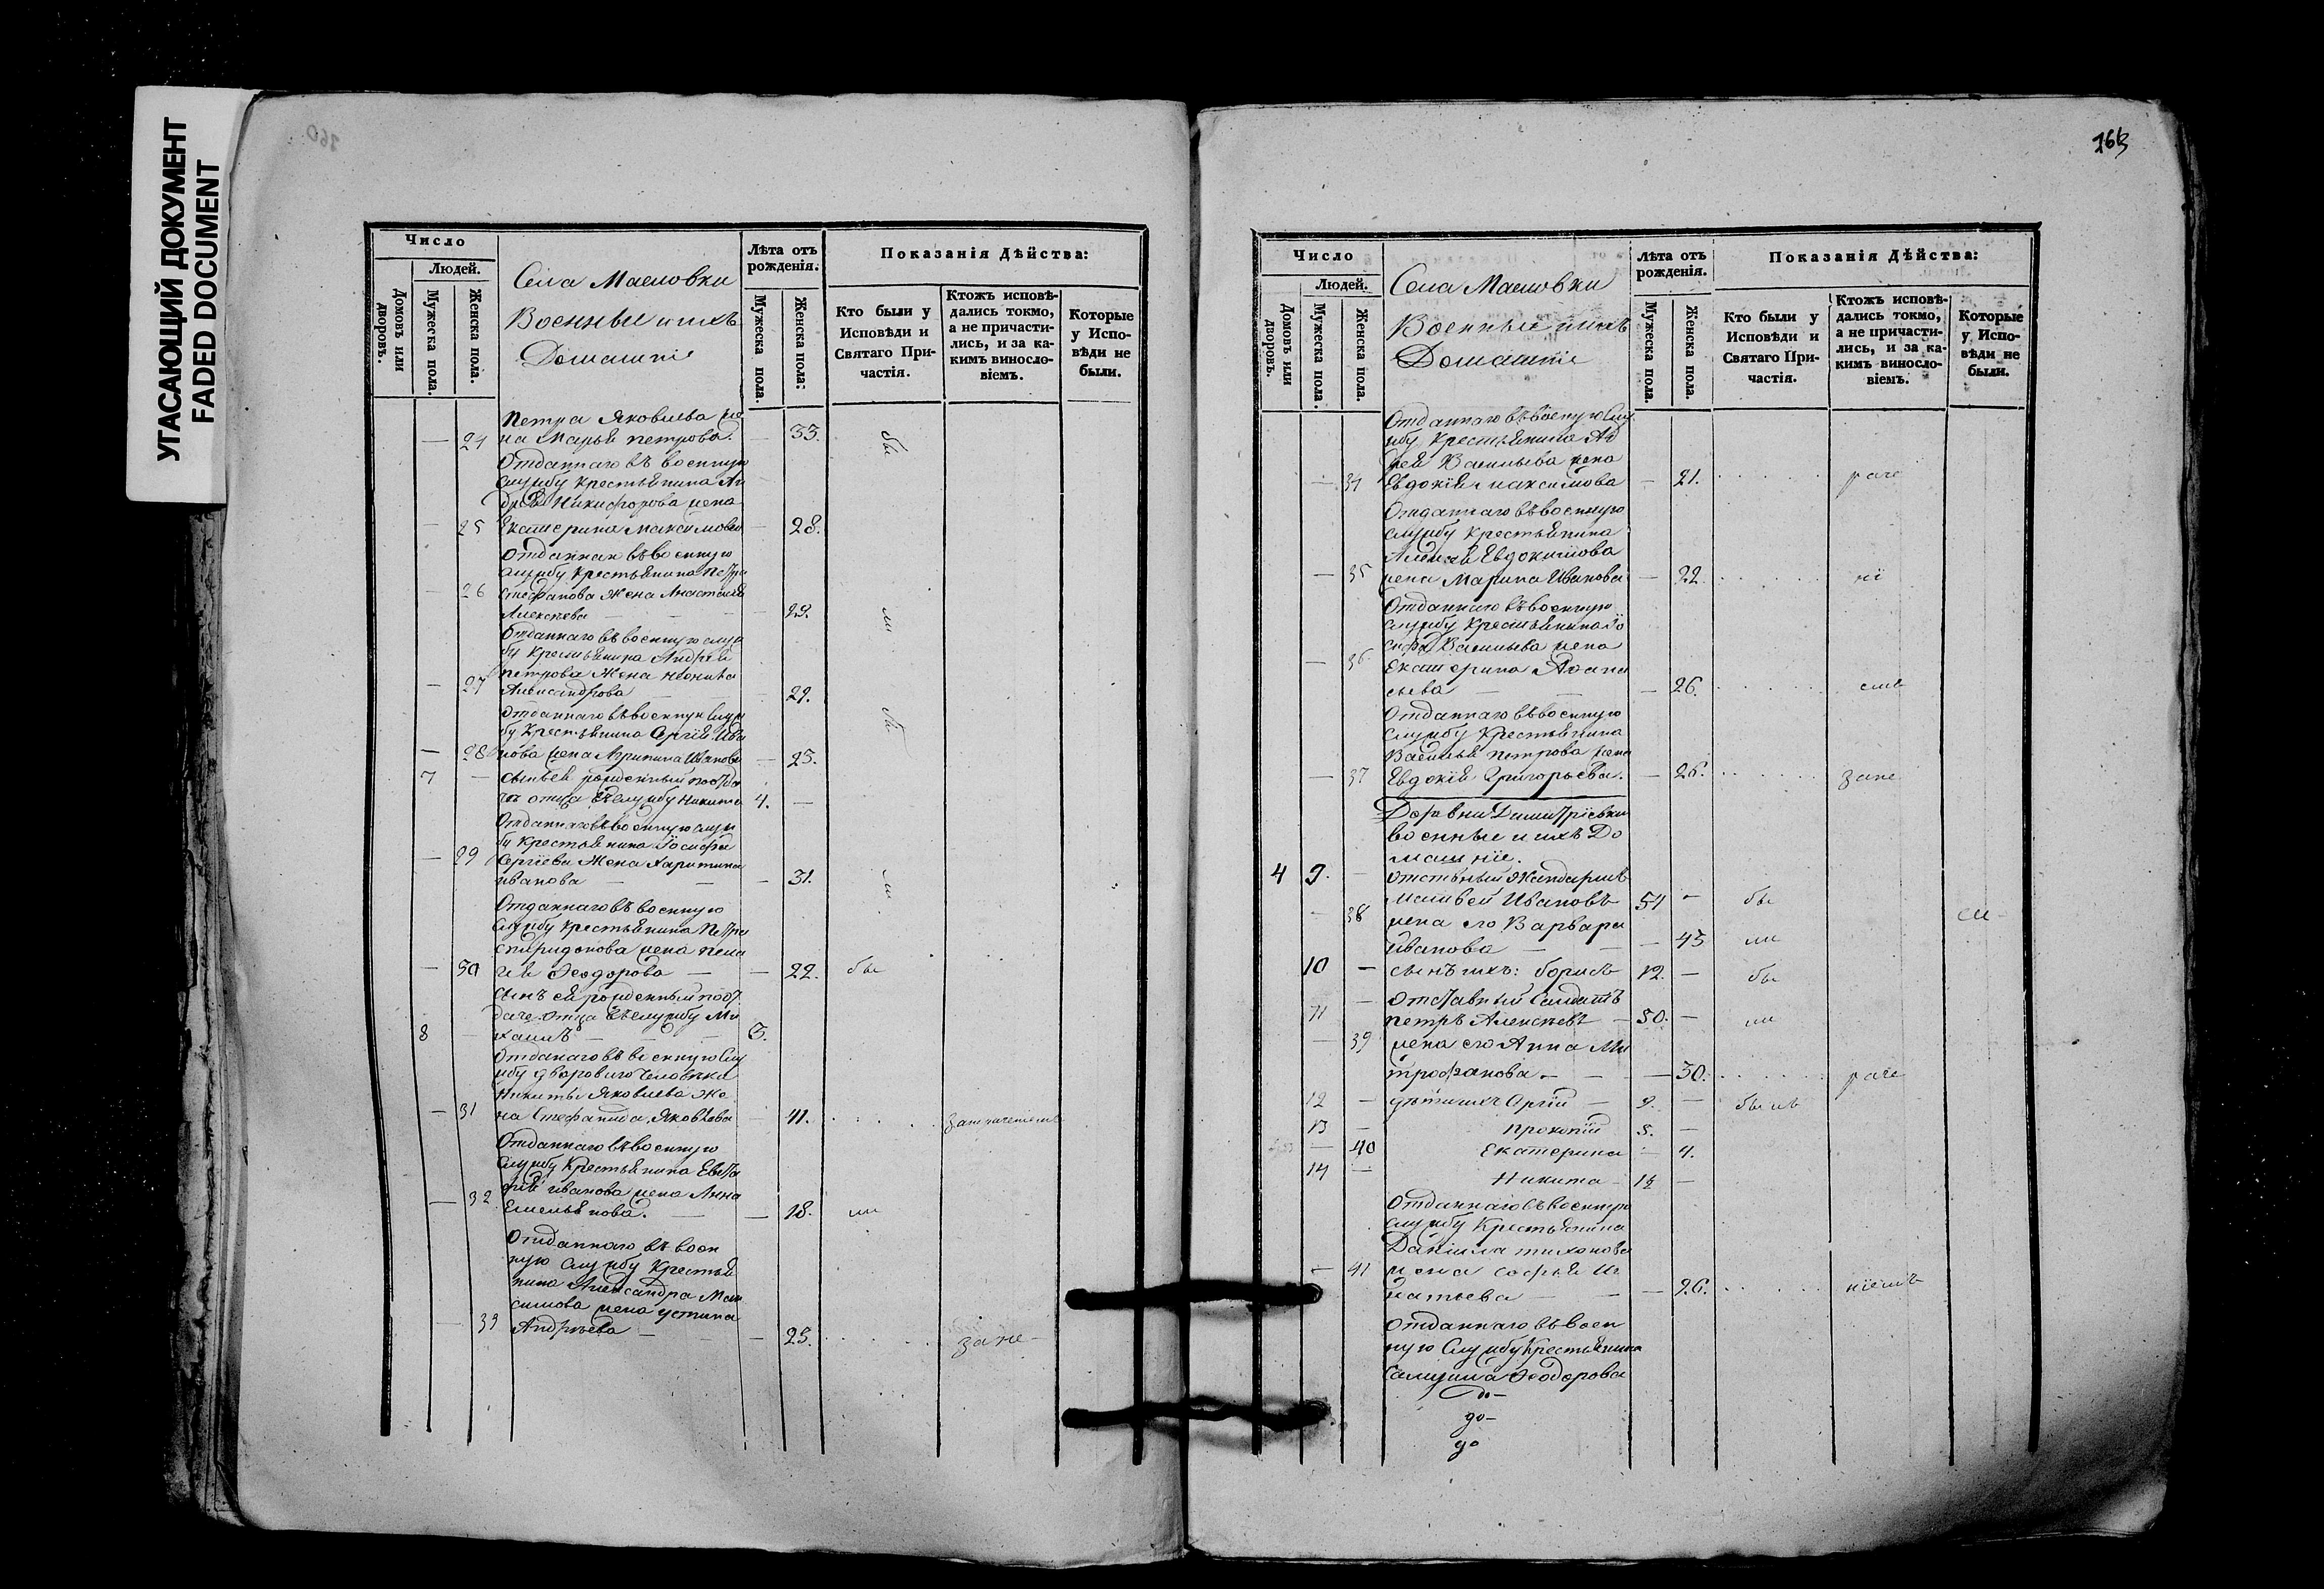 УГАСАЮЩИЙ ДОКУМЕНТ
FADED DOCUMENT
160
Число
Людей.
Домовъ или дворовъ.
Мужеска пола.
Женска пола.
Села Масловки
Военные и ихъ
Домашніе
Лѣта отъ рожденія.
Мужеска пола.
Женска пола:
Показанія Дѣйства:
Кто были у Исповѣди и Святаго Причастія.
Ктожъ исповѣдались токмо, а не причастились, и за какимъ винословіемъ.
Которые у Исповѣди не были.
Петра Яковлева же
— 24 на Марья Петрова. — 33. бы
Отданнаго въ военную
службу крестьянина Ан
дрея Никифорова жена
— 25 Екатерина Максимова — 28.
Отданнаго въ военную
службу крестьянина Петра
— 26 Стефанова жена Анастасія
Алексѣева — — 29. ли
Отданнаго въ военную служ
бу крестьянина Андрея
Петрова жена
— 27 Александрова — 29.
Отданнаго въ военную служ
бу крестьянина Сергія Ива
— 28 нова жена Агрипина Иванова — 25.
7 — сынъ ей рожденный по отда
чѣ отца въ службу Никита 4. —
Отданнаго въ военную служ
бу крестьянина Іосифа
— 29 Сергіева жена Харитина
Иванова — — — 31. ли
Отданнаго въ военную
службу крестьянина Петра
Спиридонова жена Пела
— 30 гія Ѳеодорова — — 22. бы
сынъ ей рожденный по от
даче отца въ службу Ми
8 — хаилъ — — — 3.
Отданаго въ военную слу
жбу двороваго человѣка
Никиты Яковлева же
— 31 на Стефанида Яковлева — 41.
Отданнаго въ военную
службу крестьянина Евста
фія Иванова жена Анна
— 32 Емельянова. — — 18. ли
Отданнаго въ воен
ную службу крестья
нина Александра Мак
симова жена Устина
— 33 Андреева — — 25. за не-
163
Число
Людей.
Домовъ или дворовъ.
Мужеска пола.
Женска пола.
Села Масловки
Военные и ихъ
Домашніе
Лѣта отъ рожденія.
Мужеска пола.
Женска пола.
Показанія Дѣйства:
Кто были у Исповѣди и Святаго Причастія.
Ктожъ исповѣдались токмо, а не причастились, и за какимъ винословіемъ.
Которые у Исповѣди не были.
Отданнаго въ военную слу
жбу крестьянина Ан
дрея Васильева жена
— 34 Евдокія Максимова — 21. раче
Отданнаго въ военную
службу крестьянина
Алексѣя Евдокимова
— 35 жена Марина Иванова — 22 ні
Отданнаго въ военную
службу крестьянина Іо
сифа Васильева жена
— 36 Екатерина Аѳана
сьева — — — 26. емъ
Отданнаго въ военную
службу крестьянина
Василья Петрова жена
— 37 Евдокія Григорьева. — 26. зане
Деревни Димитріевки
военные и ихъ До
машніе.
4 9. — отставный жандармъ
Матвей Ивановъ 51 — бы
— 38 жена его Варвара
Иванова — — — 45 ли
10 — сынъ ихъ: Борисъ 12. — бы
— отставный солдатъ
11 Петръ Алексѣевъ — 50. — ли
— 39 жена его Анна Ми
трофанова — — — 30. раче
12 — дѣти ихъ Сергій — 9. — были
13 — Прокопій 5. —
— 40 Екатерина — 4.
14 — Никита —
Отданнаго въ военную
службу крестьянина
Даніила Тихонова
— 41 жена Софья Иг
натьева — — — 26. ніемъ
Отданнаго въ воен
ную службу крестьянина
Самуила Ѳеодорова
до-
до-
до